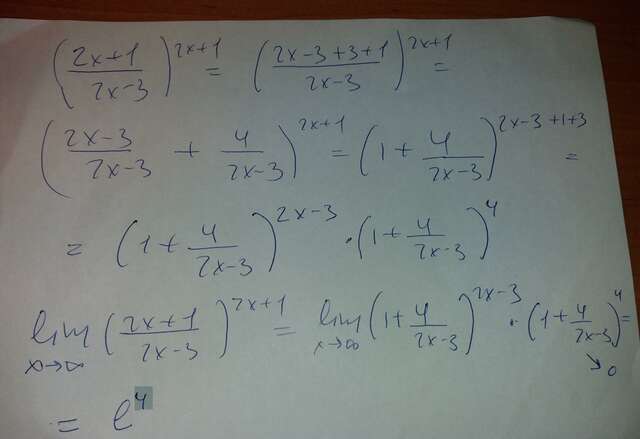 (2x+1 / 2x-3)^2x+1 = (2x-3+3+1 / 2x-3)^2x+1 =
(2x-3 / 2x-3 + 4 / 2x-3)^2x+1 = (1 + 4 / 2x-3)^2x-3+1+3 =
= (1 + 4 / 2x-3)^2x-3 · (1 + 4 / 2x-3)^4
lim x→∞ (2x+1 / 2x-3)^2x+1 = lim x→∞ (1 + 4 / 2x-3)^2x-3 · (1 + 4 / 2x-3)^4 =
↘ 0
= e^4